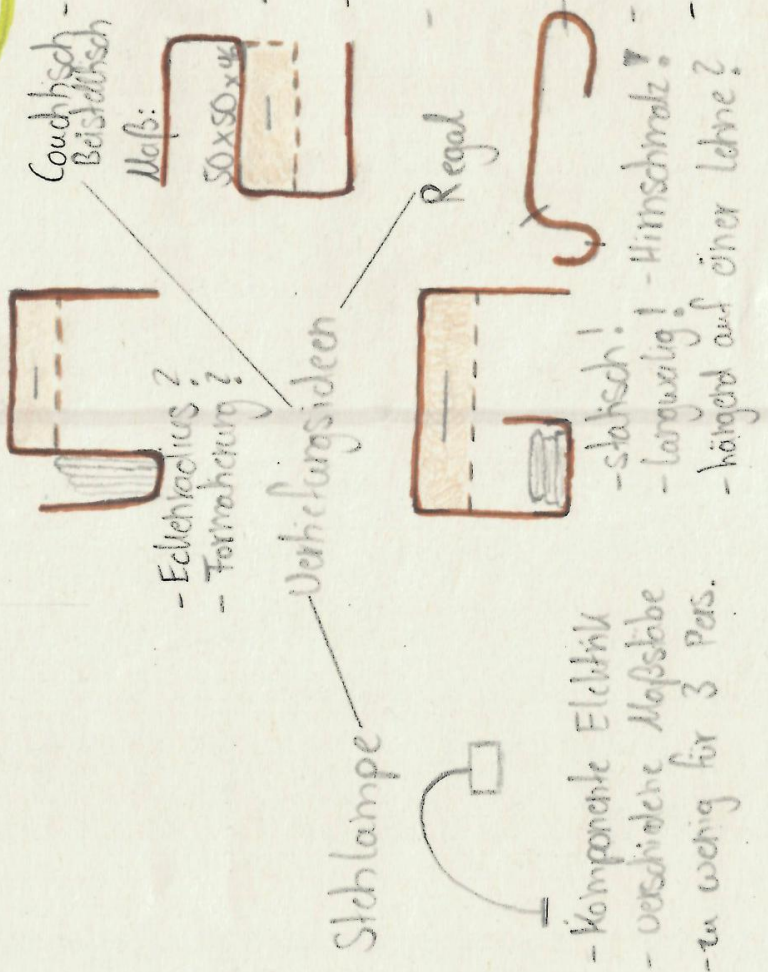 Couchtisch
Beistelltisch
Maß:
50x50x4
- Eckenradius?
- Formänderung?
Vertiefungsideen
Regal
- statisch!
- langweilig!
- Hirnschmalz!
- hängend auf einer Lehne?
Stehlampe
- Komponente Elektrik
- verschiedene Maßstäbe
- zu wenig für 3 Pers.